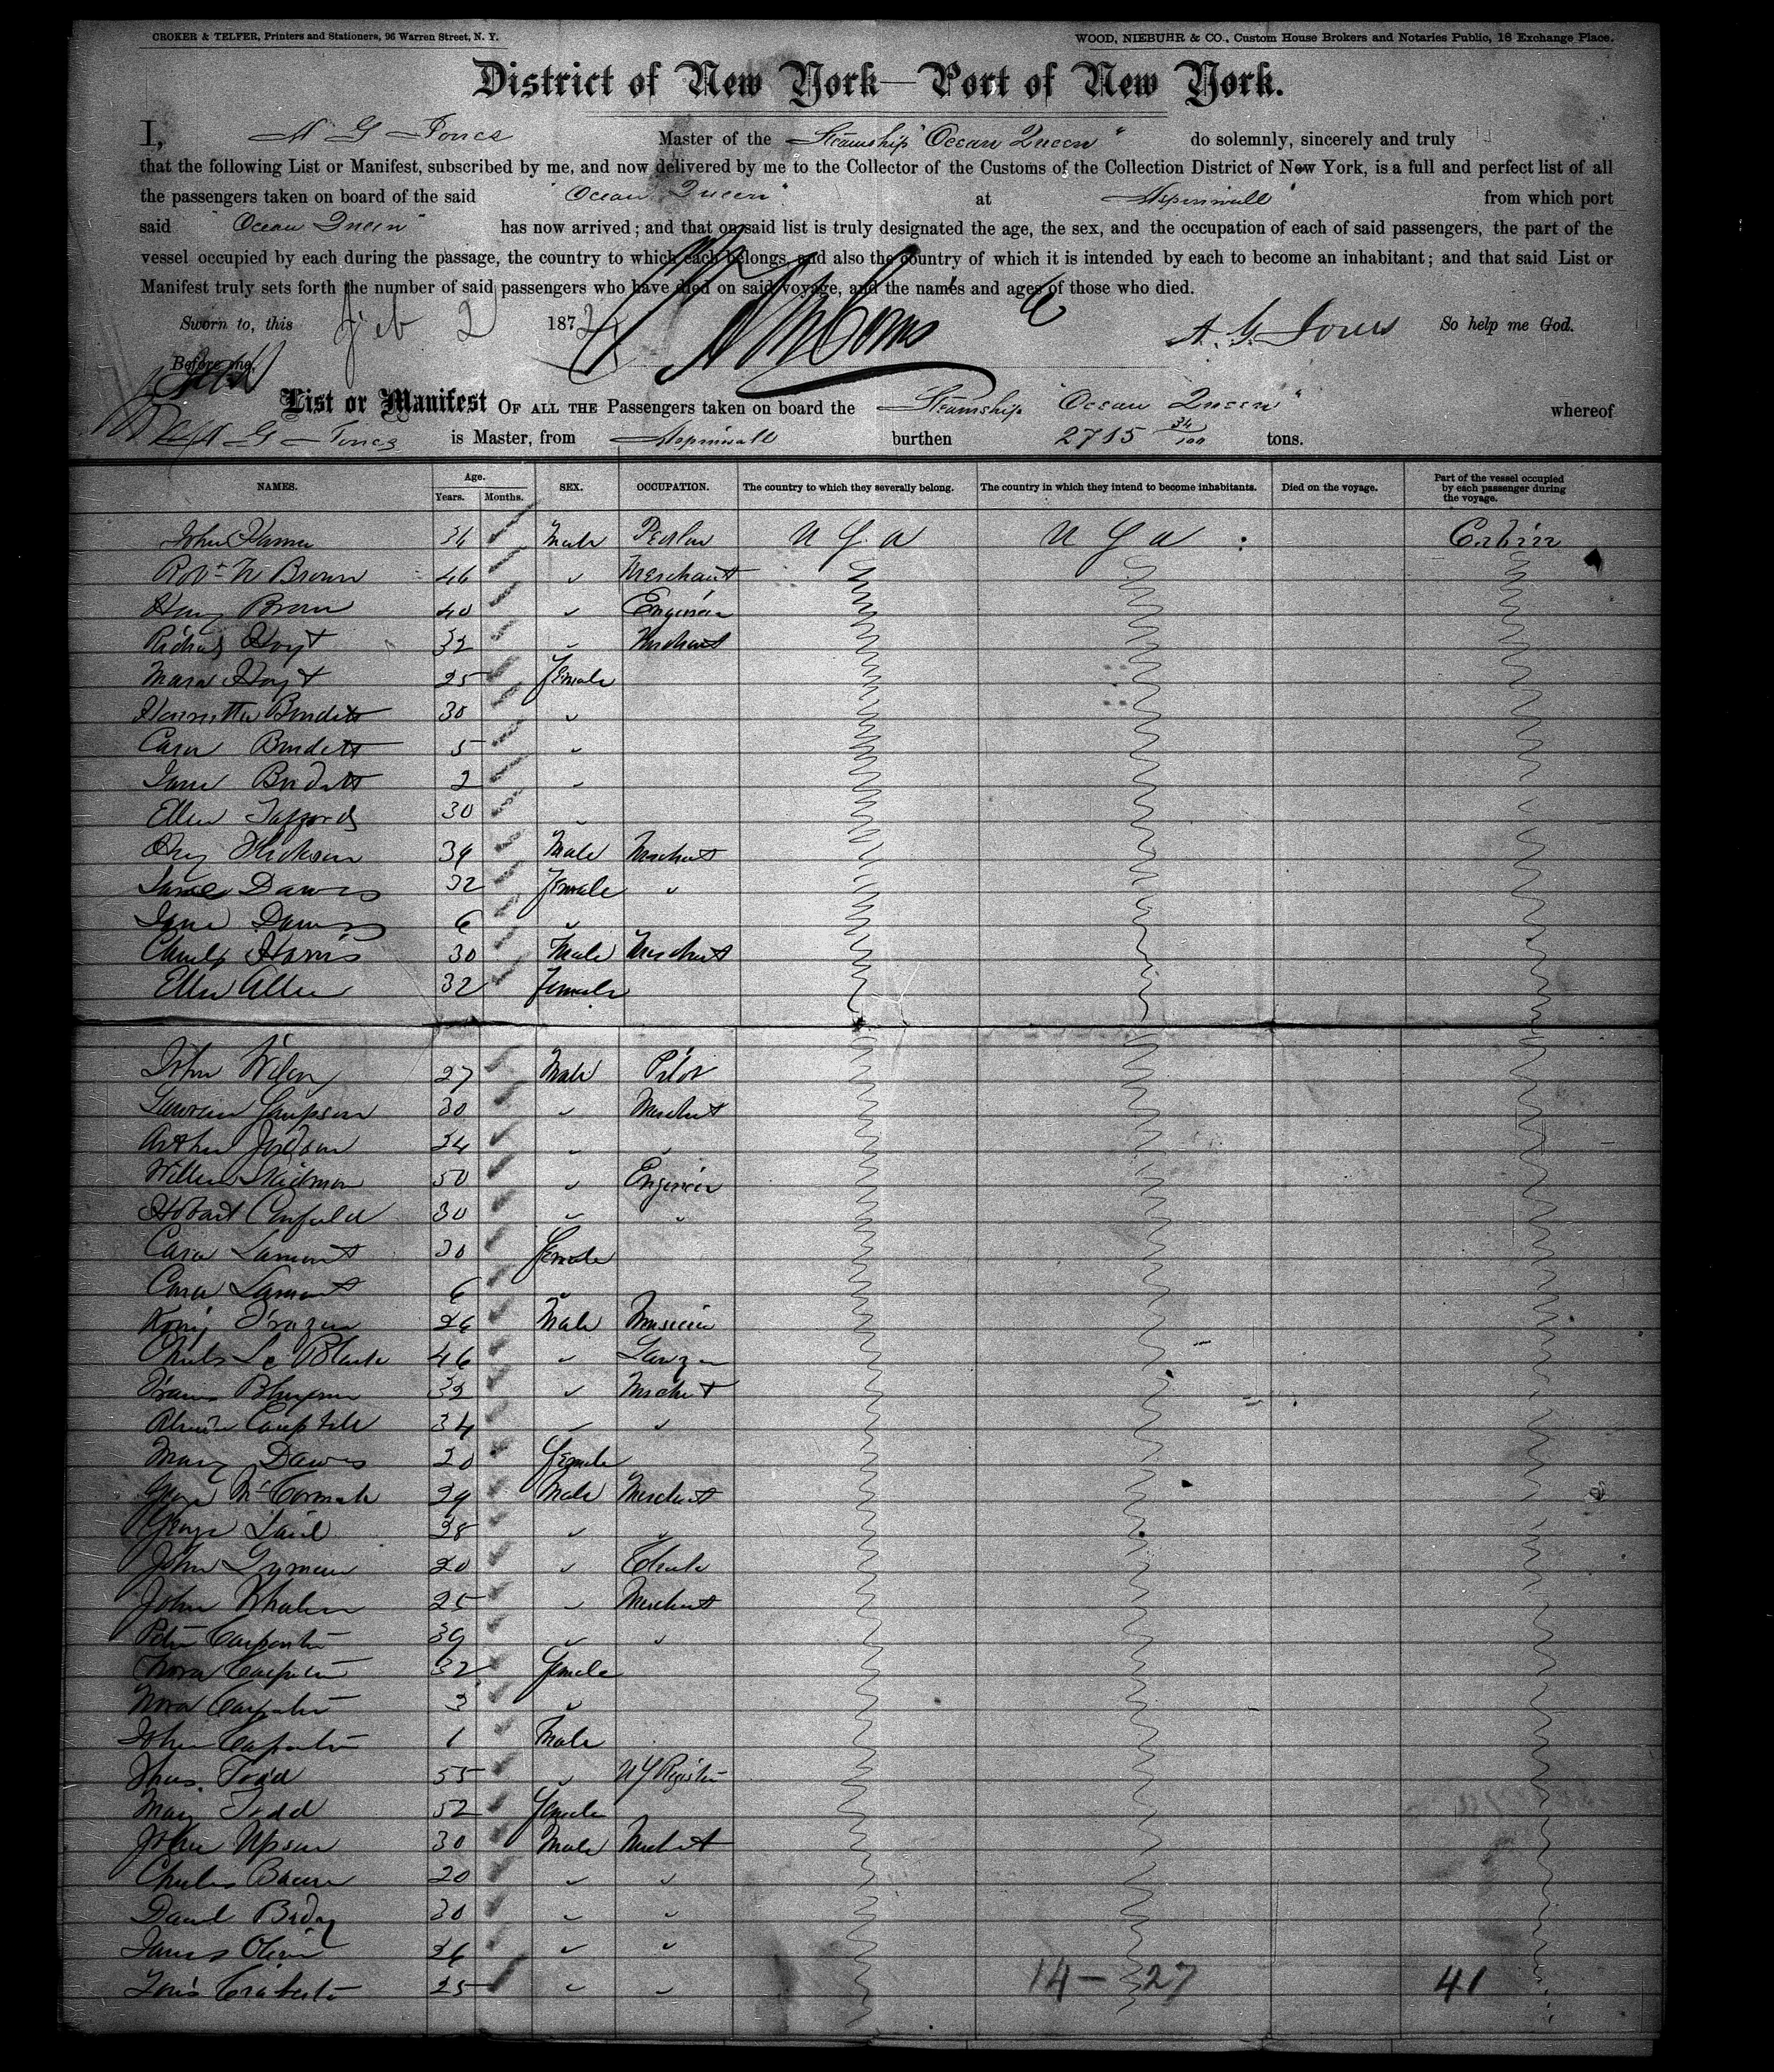 CROKER & TELFER, Printers and Stationers, 96 Warren Street, N. Y.
WOOD, NIEBUHR & CO., Custom House Brokers and Notaries Public, 18 Exchange Place.
District of New York—Port of New York.
I, A G Jones Master of the Steamship "Ocean Queen" do solemnly, sincerely and truly
that the following List or Manifest, subscribed by me, and now delivered by me to the Collector of the Customs of the Collection District of New York, is a full and perfect list of all
the passengers taken on board of the said "Ocean Queen" at Aspinwall from which port
said "Ocean Queen" has now arrived; and that on said list is truly designated the age, the sex, and the occupation of each of said passengers, the part of the
vessel occupied by each during the passage, the country to which each belongs, and also the country of which it is intended by each to become an inhabitant; and that said List or
Manifest truly sets forth the number of said passengers who have died on said voyage, and the names and ages of those who died.
Sworn to, this Feb 2 1872 A. G. Jones So help me God.
Before me,
List or Manifest OF ALL THE Passengers taken on board the Steamship "Ocean Queen" whereof
A G Jones is Master, from Aspinwall burthen 2715 34/100 tons.
NAMES. Age. Years. Months. SEX. OCCUPATION. The country to which they severally belong. The country in which they intend to become inhabitants. Died on the voyage. Part of the vessel occupied by each passenger during the voyage.
John Male Pedlar U S A U S A Cabin
Robt N Brown 46 " Merchant
Henry Brown 40 " Engineer
Richard Hoyt 32 " Merchant
Maria Hoyt 25 Female
Henrietta Burdett 30 "
Cara Burdett 5 "
Jane Burdett 2 "
Ellen 30 "
39 Male Merchant
Jane Dawes 32 Female "
Jane Dawes 6 "
Charles Harris 30 Male Merchant
Ellen Allen 32 Female
John Wilson 27 Male Pilot
Simpson 30 " Merchant
Arthur Judson 24 " "
William Skidmore 50 " Engineer
Hobart Canfield 30 " "
Cara Lamont 30 Female
Cara Lamont 6 "
26 Male Musician
Charles Le 46 " Lawyer
32 " Merchant
Campbell 34 " "
Mary Dawes 20 Female
George McCormack 29 Male Merchant
George Laird 28 " "
John Lyman 20 " Clerk
John Whalen 25 " Merchant
Peter Carpenter 39 " "
Nora Carpenter 32 Female
Nora Carpenter 3 "
John Carpenter 1 Male
Thos. Todd 55 " N Y Register
Mary Todd 52 Female
John Upson 30 Male Merchant
Charles Bacon 20 " "
David 30 " "
James 26 " "
25 " "
14 — 27 41